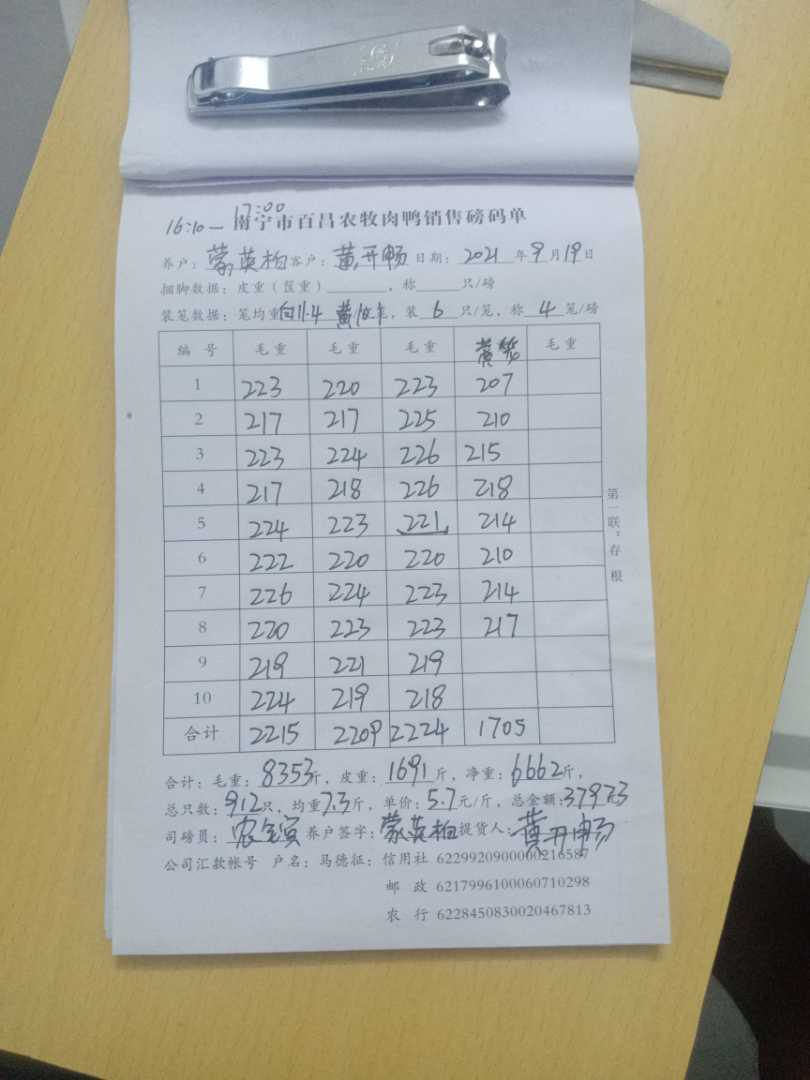 16:10— 17:00
南宁市百昌农牧肉鸭销售磅码单
养户：蒙英柏 客户：黄开畅 日期：2021年9月19日
捆脚数据：皮重（筐重）______，称____只/磅
装笼数据：笼均重白11.4 黄10.，装6只/笼，称4笼/磅
编号 毛重 毛重 毛重 黄笼 毛重
1 223 220 223 207
2 217 217 225 210
3 223 224 226 215
4 217 218 226 218
5 224 223 221 214
6 222 220 220 210
7 226 224 223 214
8 220 223 223 217
9 219 221 219
10 224 219 218
合计 2215 2209 2224 1705
合计：毛重：8353斤，皮重：1691斤，净重：6662斤，
总只数：912只，均重7.3斤，单价：5.7元/斤，总金额：37973
司磅员： 养户签字：蒙英柏 提货人：黄开畅
公司汇款帐号 户名：马德征：信用社 6229920900000216587
邮 政 6217996100060710298
农 行 6228450830020467813
第一联：存根